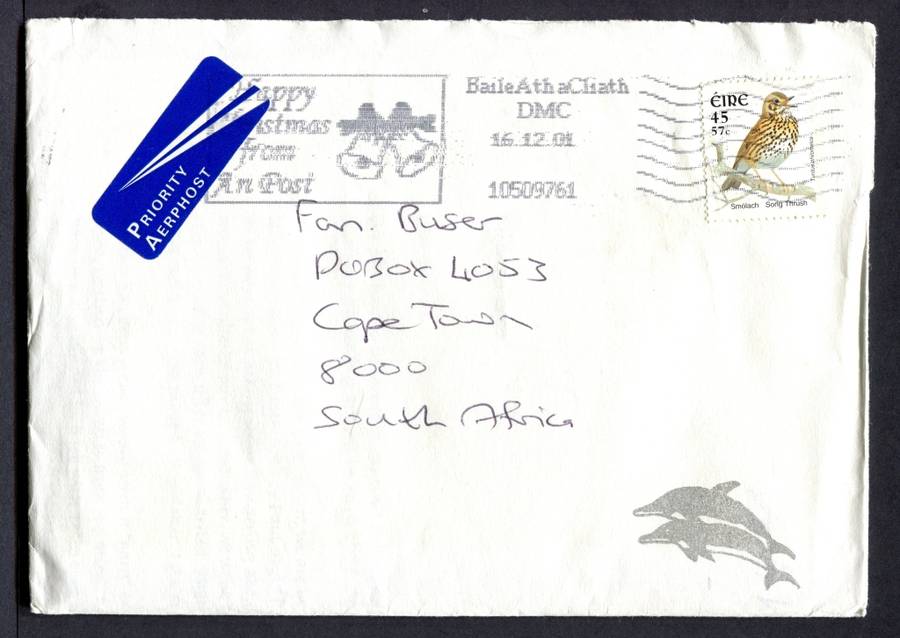 Happy
Christmas
from
An Post
Baile Áth a Cliath
DMC
16.12.01
10509761
ÉIRE
45
57c
Smólach Song Thrush
PRIORITY
AERPHOST
Fan. Buser
POBox 4053
Cape Town
8000
South Africa